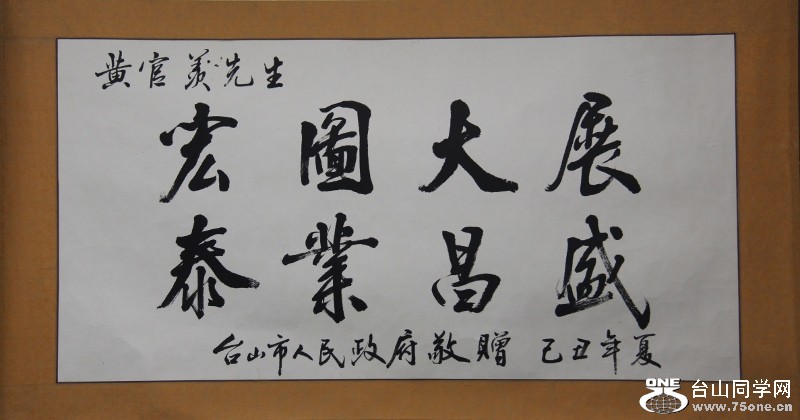 黄官羡先生
宏圖大展
泰業昌盛
台山市人民政府敬贈 己丑年夏
ONE
台山同学网
www.75one.cn